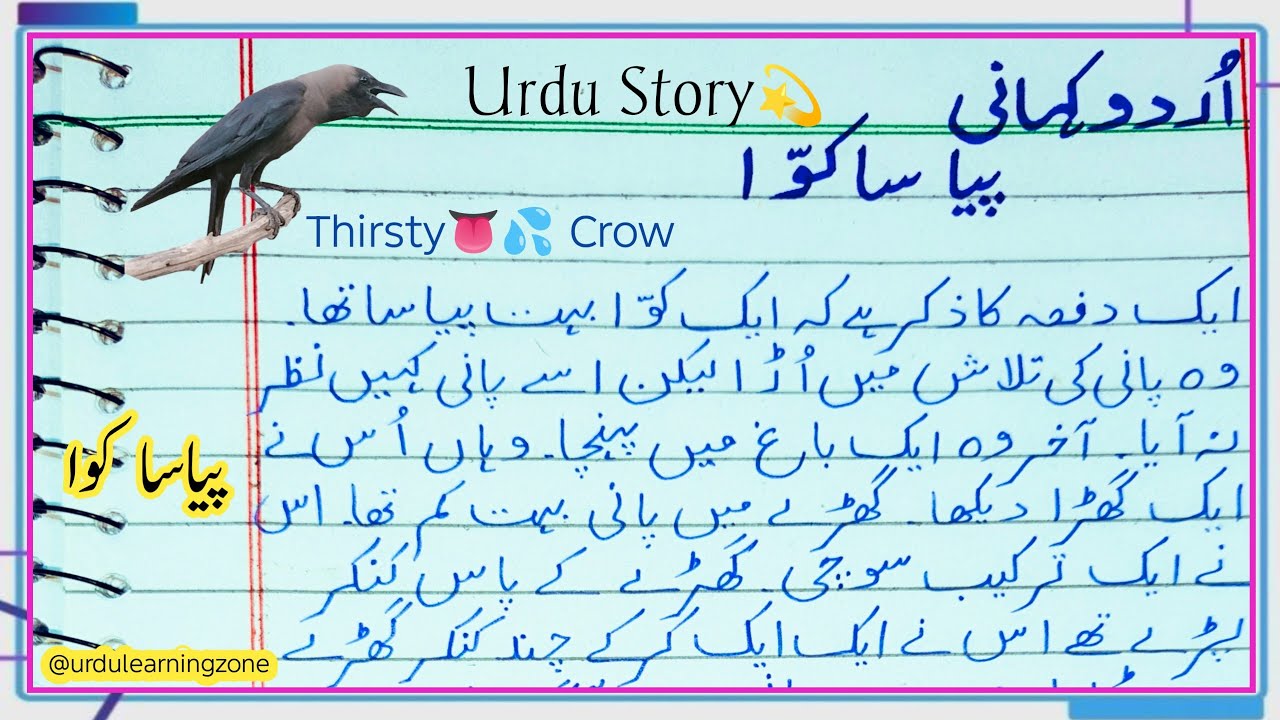 Urdu Story
اُردو کہانی
پیاسا کوّا
Thirsty Crow
ایک دفعہ کا ذکر ہے کہ ایک کوّا بہت پیاسا تھا۔
وہ پانی کی تلاش میں اُڑا لیکن اسے پانی کہیں نظر
نہ آیا۔ آخر وہ ایک باغ میں پہنچا۔ وہاں اُس نے
ایک گھڑا دیکھا۔ گھڑے میں پانی بہت کم تھا۔ اس
نے ایک ترکیب سوچی۔ گھڑے کے پاس کنکر
پڑے تھے اس نے ایک ایک کرکے چند کنکر گھڑے
پیاسا کوا
@urdulearningzone